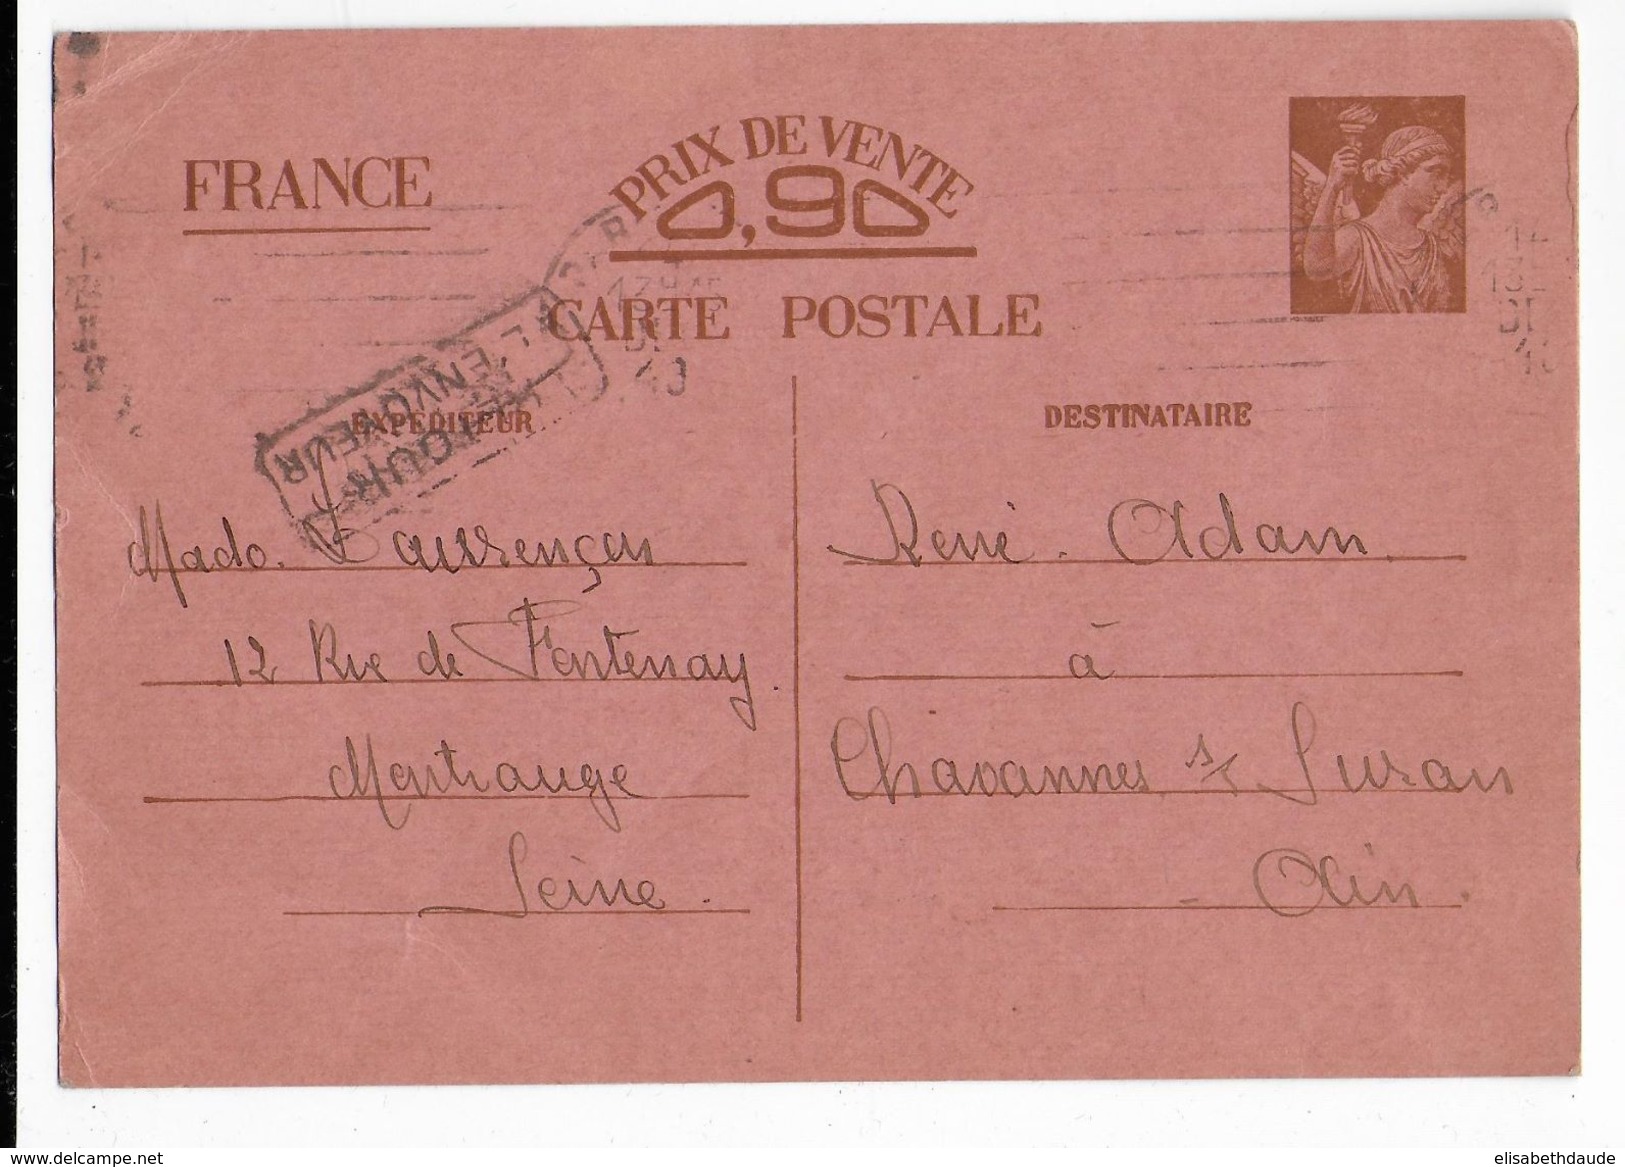 FRANCE
PRIX DE VENTE
0,90
CARTE POSTALE
RETOUR
A L'ENVOYEUR
EXPÉDITEUR
DESTINATAIRE
Mado. Laurençon
12 Rue de Fontenay.
Montrouge
Seine.
René. Adam.
à
Chavannes s/ Suran
- Ain.
delcampe.net
elisabethdaude